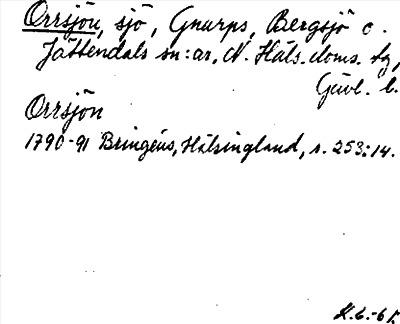 Orrsjön, sjö, Gnarps, Bergsjö o.
Jättendals sn:ar, N. Häls. doms. tg,
Gävl. l.
Orrsjön
1790-91 Bringéus, Hälsingland, s. 253:14.
K.G.-61.